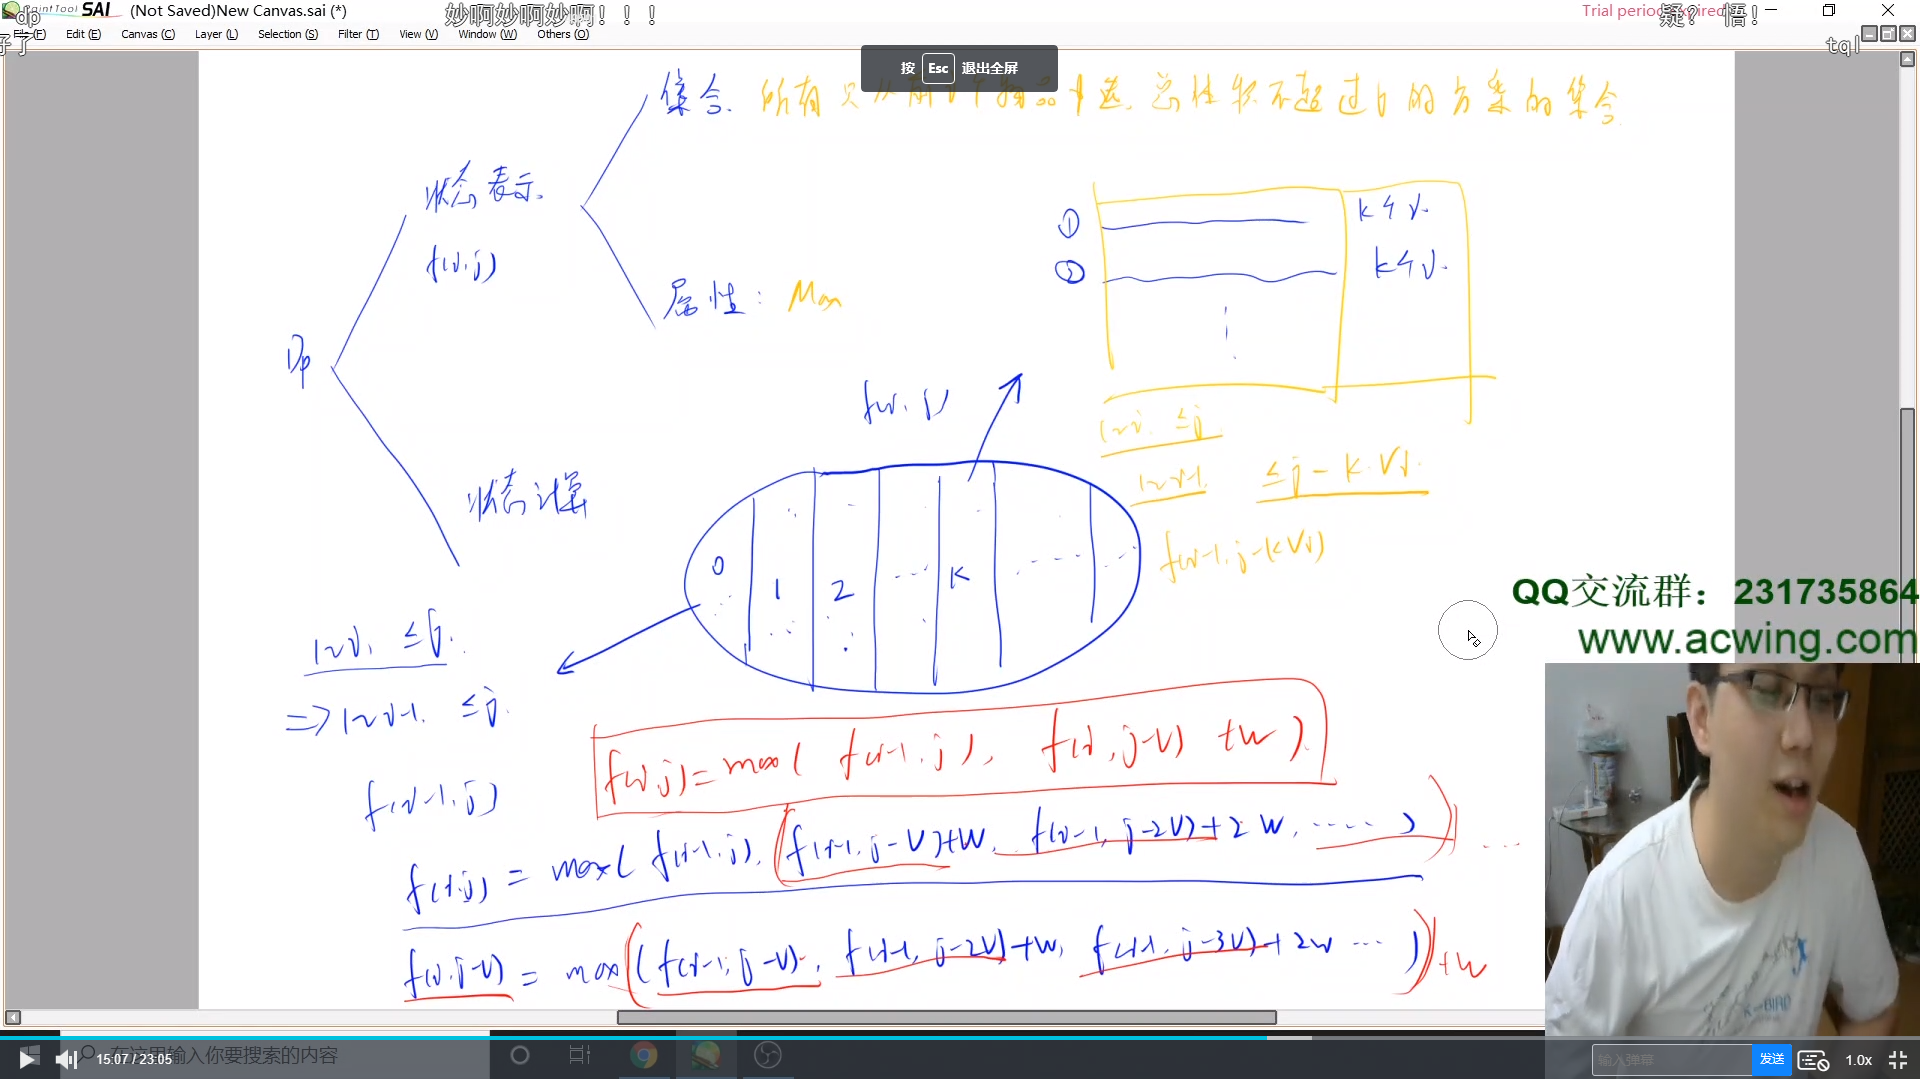 PaintTool SAI (Not Saved)New Canvas.sai (*)
dp
妙啊妙啊妙啊！！！
疑？ 悟！
Edit (E) Canvas (C) Layer (L) Selection (S) Filter (T) View (V) Window (W) Others (O)
tql
按 Esc 退出全屏
集合. 所有只从前i个物品中选，总体积不超过j的方案的集合
状态表示.
f(i,j)
属性: Max
① k个i.
② k个i.
Dp
f(i,j)
1~i. ≤j
1~i-1. ≤j - k·Vi.
f(i-1, j-kVi)
状态计算
0 1 2 ... k ......
1~i, ≤j.
=> 1~i-1. ≤j.
f(i-1, j)
f(i,j)=max( f(i-1,j), f(i,j-v) +w ).
f(i,j) = max( f(i-1,j), f(i-1,j-v)+w, f(i-1, j-2v)+2w, ..... )
f(i,j-v) = max( f(i-1,j-v), f(i-1, j-2v)+w, f(i-1, j-3v)+2w ... ) +w
QQ交流群：231735864
www.acwing.com
15:07 / 23:05
在这里输入你要搜索的内容
输入弹幕 发送 1.0x